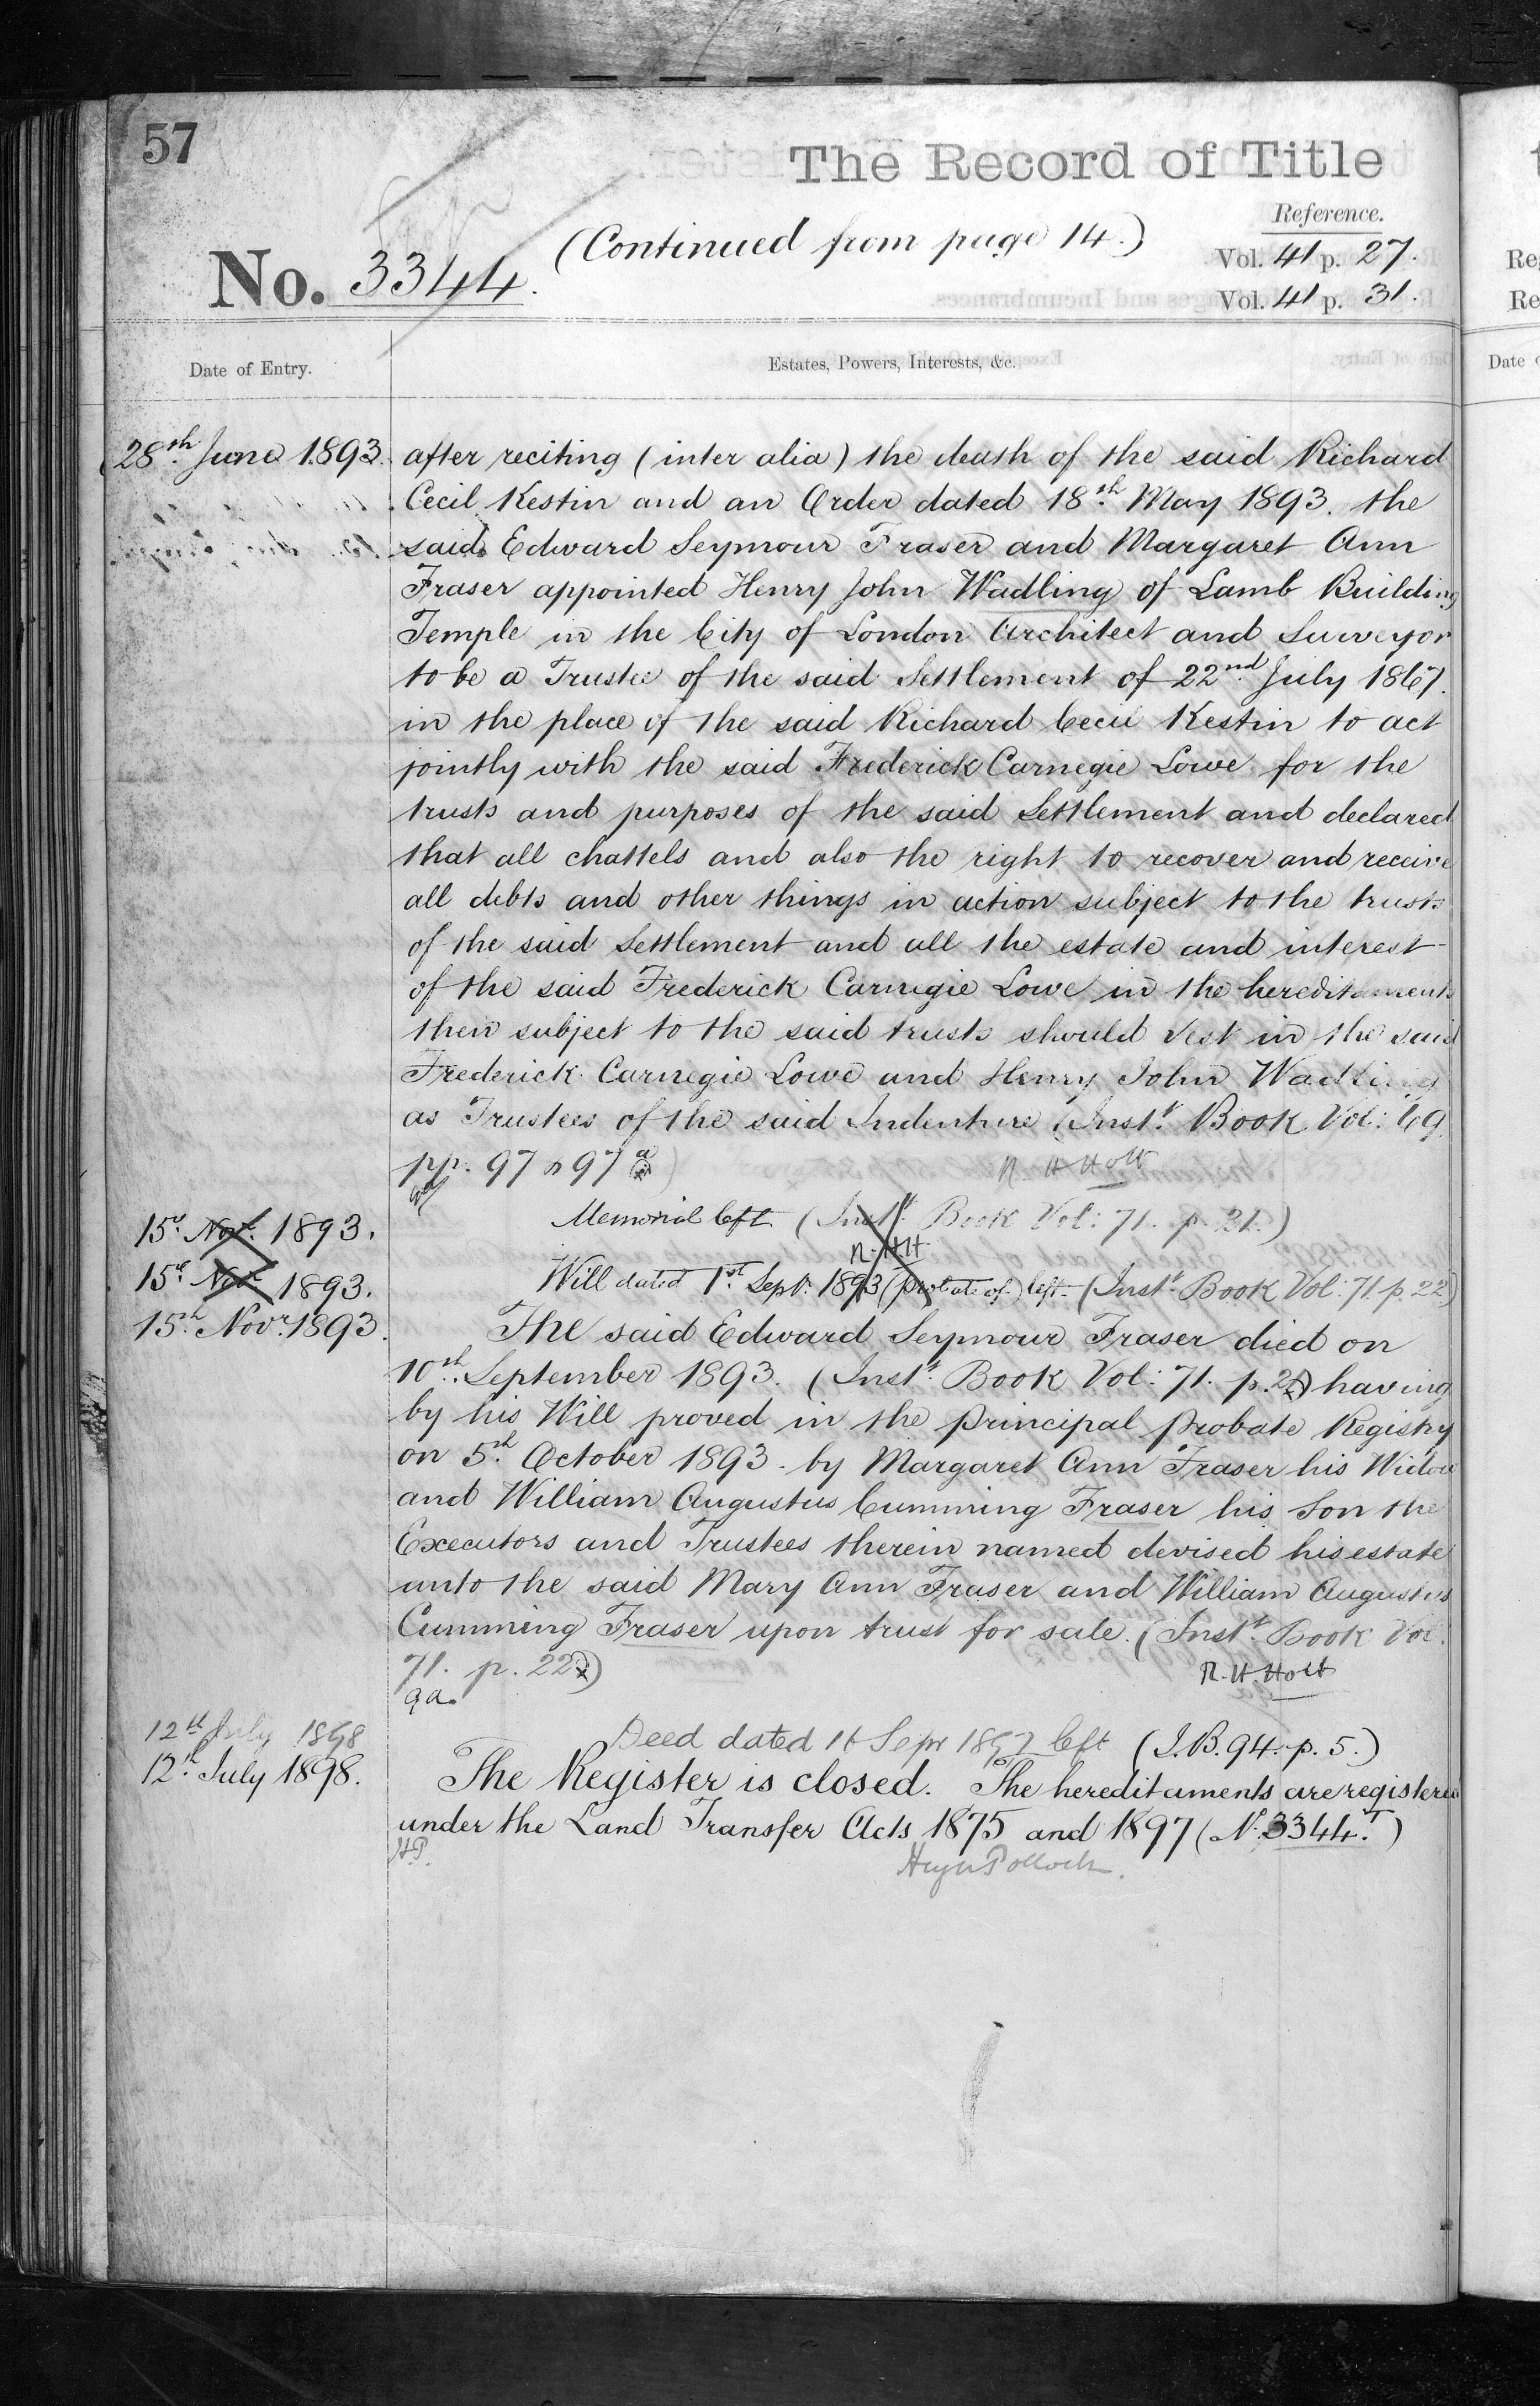 57
The Record of Title
Reference.
No. 3344.
(Continued from page 14.)
Vol. 41 p. 27.
Vol. 41 p. 31.
Date of Entry.
Estates, Powers, Interests, &c.
28th June 1893. after reciting (inter alia) the death of the said Richard
Cecil Kestin and an Order dated 18th May 1893. the
said Edward Seymour Fraser and Margaret Ann
Fraser appointed Henry John Wadling of Lamb Building
Temple in the City of London Architect and Surveyor
to be a Trustee of the said Settlement of 22nd July 1867.
in the place of the said Richard Cecil Kestin to act
jointly with the said Frederick Carnegie Lowe for the
trusts and purposes of the said Settlement and declared
that all chattels and also the right to recover and receive
all debts and other things in action subject to the trusts
of the said Settlement and all the estate and interest
of the said Frederick Carnegie Lowe in the hereditaments
then subject to the said trusts should vest in the said
Frederick Carnegie Lowe and Henry John Wadling
as Trustees of the said Indenture (Inst. Book Vol: 69.
pp. 97 & 97a) R. H. Holt
15th Nov. 1893. Memorial left (Inst. Book Vol: 71. p. 21.)
R.H.H.
15th Nov. 1893. Will dated 1st Sept. 1893 (probate of) left. (Inst. Book Vol: 71. p. 22)
15th Novr. 1893. The said Edward Seymour Fraser died on
10th September 1893. (Inst. Book Vol: 71. p. 21) having
by his Will proved in the Principal Probate Registry
on 5th October 1893. by Margaret Ann Fraser his Widow
and William Augustus Cumming Fraser his Son the
Executors and Trustees therein named devised his estate
unto the said Mary Ann Fraser and William Augustus
Cumming Fraser upon trust for sale. (Inst. Book Vol.
71. p. 22) R. H. Holt
12th July 1898 Deed dated 14 Sepr 1897 left (I.B. 94. p. 5.)
12th July 1898. The Register is closed. The hereditaments are registered
under the Land Transfer Acts 1875 and 1897 (No. 3344T.)
H.P.
Hugh Pollock.